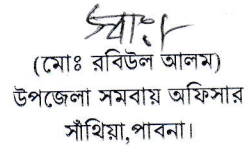 স্বাঃ
(মোঃ রবিউল আলম)
উপজেলা সমবায় অফিসার
সাঁথিয়া,পাবনা।